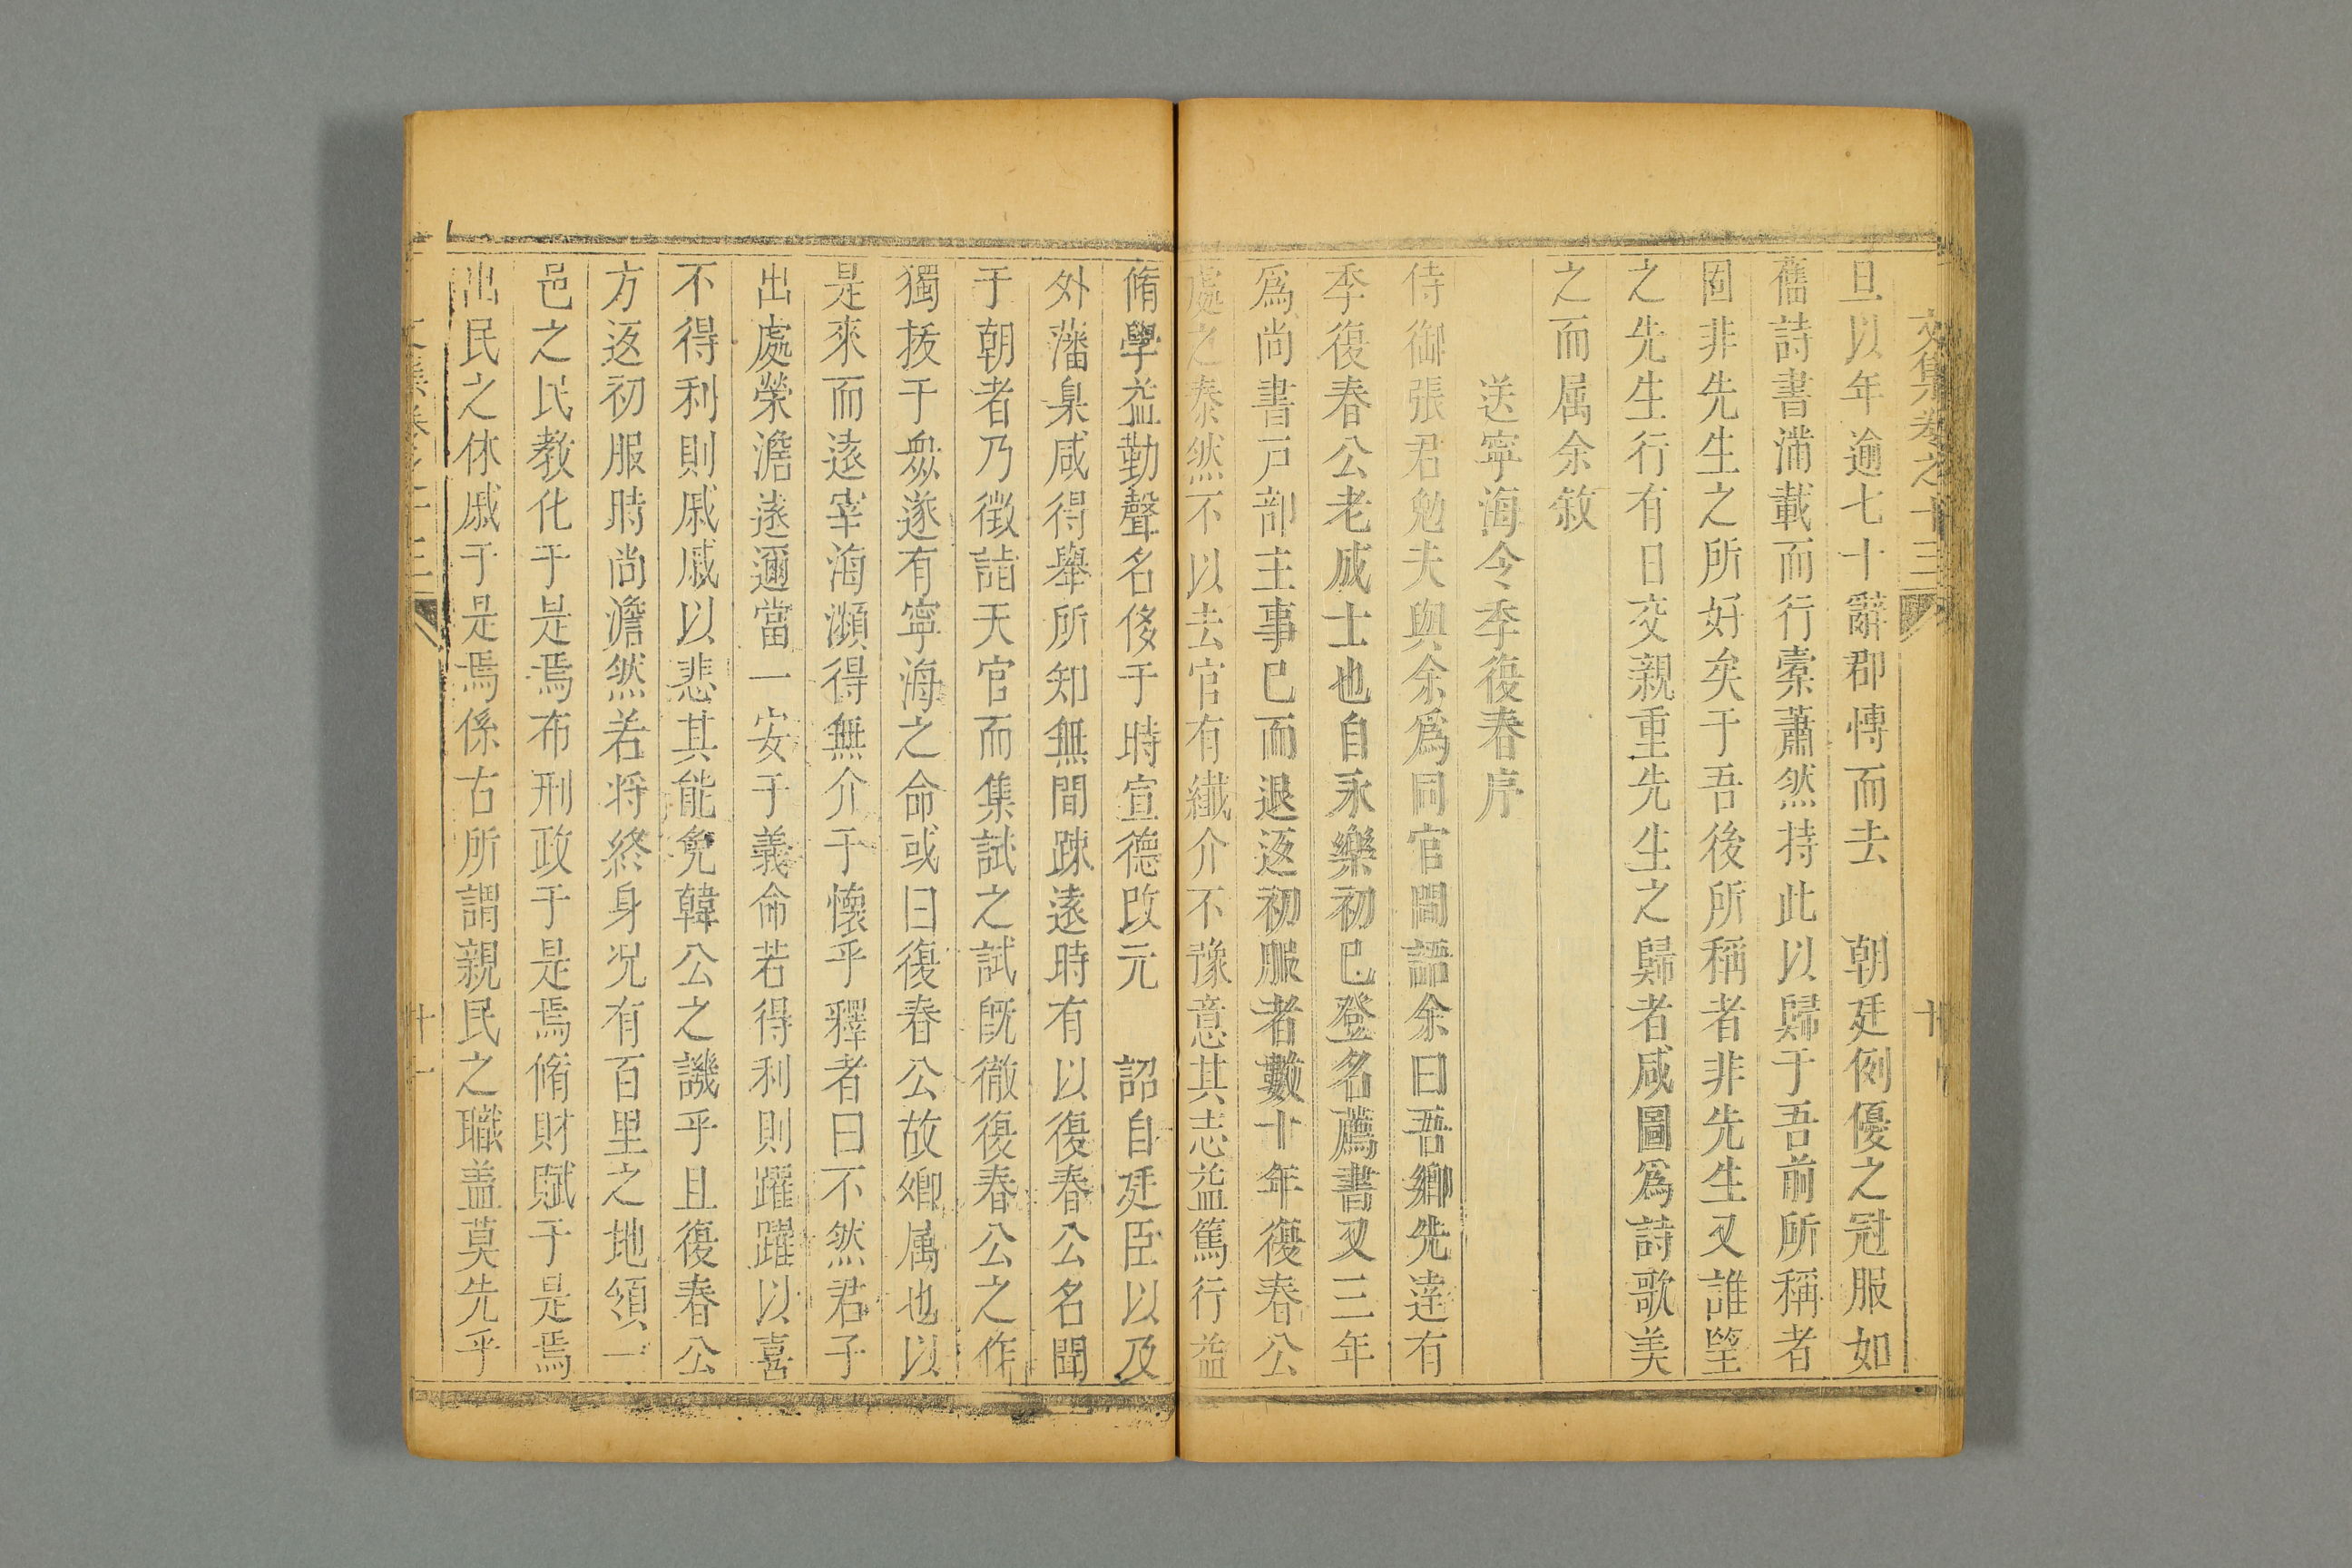 文集卷之十三
十
旦以年逾七十辭郡博而去 朝廷例優之冠服如
舊詩書滿載而行槖蕭然持此以歸于吾前所稱者
固非先生之所好矣于吾後所稱者非先生又誰望
之先生行有日交親重先生之歸者咸圖爲詩歌美
之而属余敘
送寧海令季復春序
侍御張君勉夫與余爲同官間語余曰吾鄉先達有
季復春公老成士也自永樂初已登名薦書又三年
爲尚書戸部主事已而退返初服者數十年復春公
處之泰然不以去官有纖介不豫意其志益篤行益
脩學益勤聲名侈于時宣德改元 詔自廷臣以及
外藩臬咸得舉所知無間踈遠時有以復春公名聞
于朝者乃徴詣天官而集試之試旣徹復春公之作
獨拔于衆遂有寧海之命或曰復春公故鄉属也以
是來而遠宰海瀕得無介于懷乎釋者曰不然君子
出處榮澹遠邇當一安于義命若得利則躍躍以喜
不得利則戚戚以悲其能免韓公之譏乎且復春公
方返初服時尚澹然若将終身况有百里之地須一
邑之民教化于是焉布刑政于是焉脩財賦于是焉
出民之休戚于是焉係古所謂親民之職盖莫先乎
十一